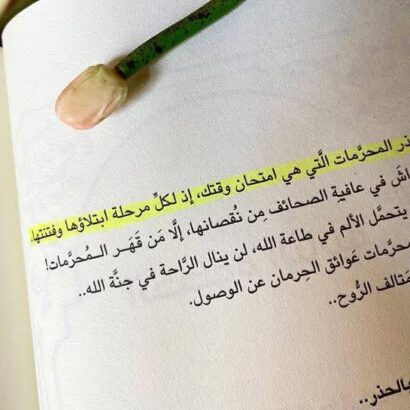 ذر المحرَّمات الَّتي هي امتحان وقتك، إذ لكلِّ مرحلة ابتلاؤها وفتنتها.
اش في عافيةِ الصحائف مِن نُقصانها، إلَّا مَن قَهَر المُحرَّمات!
يتحمَّل الألم في طاعة الله، لن ينال الرَّاحة في جنَّة الله..
حرَّمات عَوائق الحِرمان عن الوصول.
متالف الرُّوح..
بالحذر..